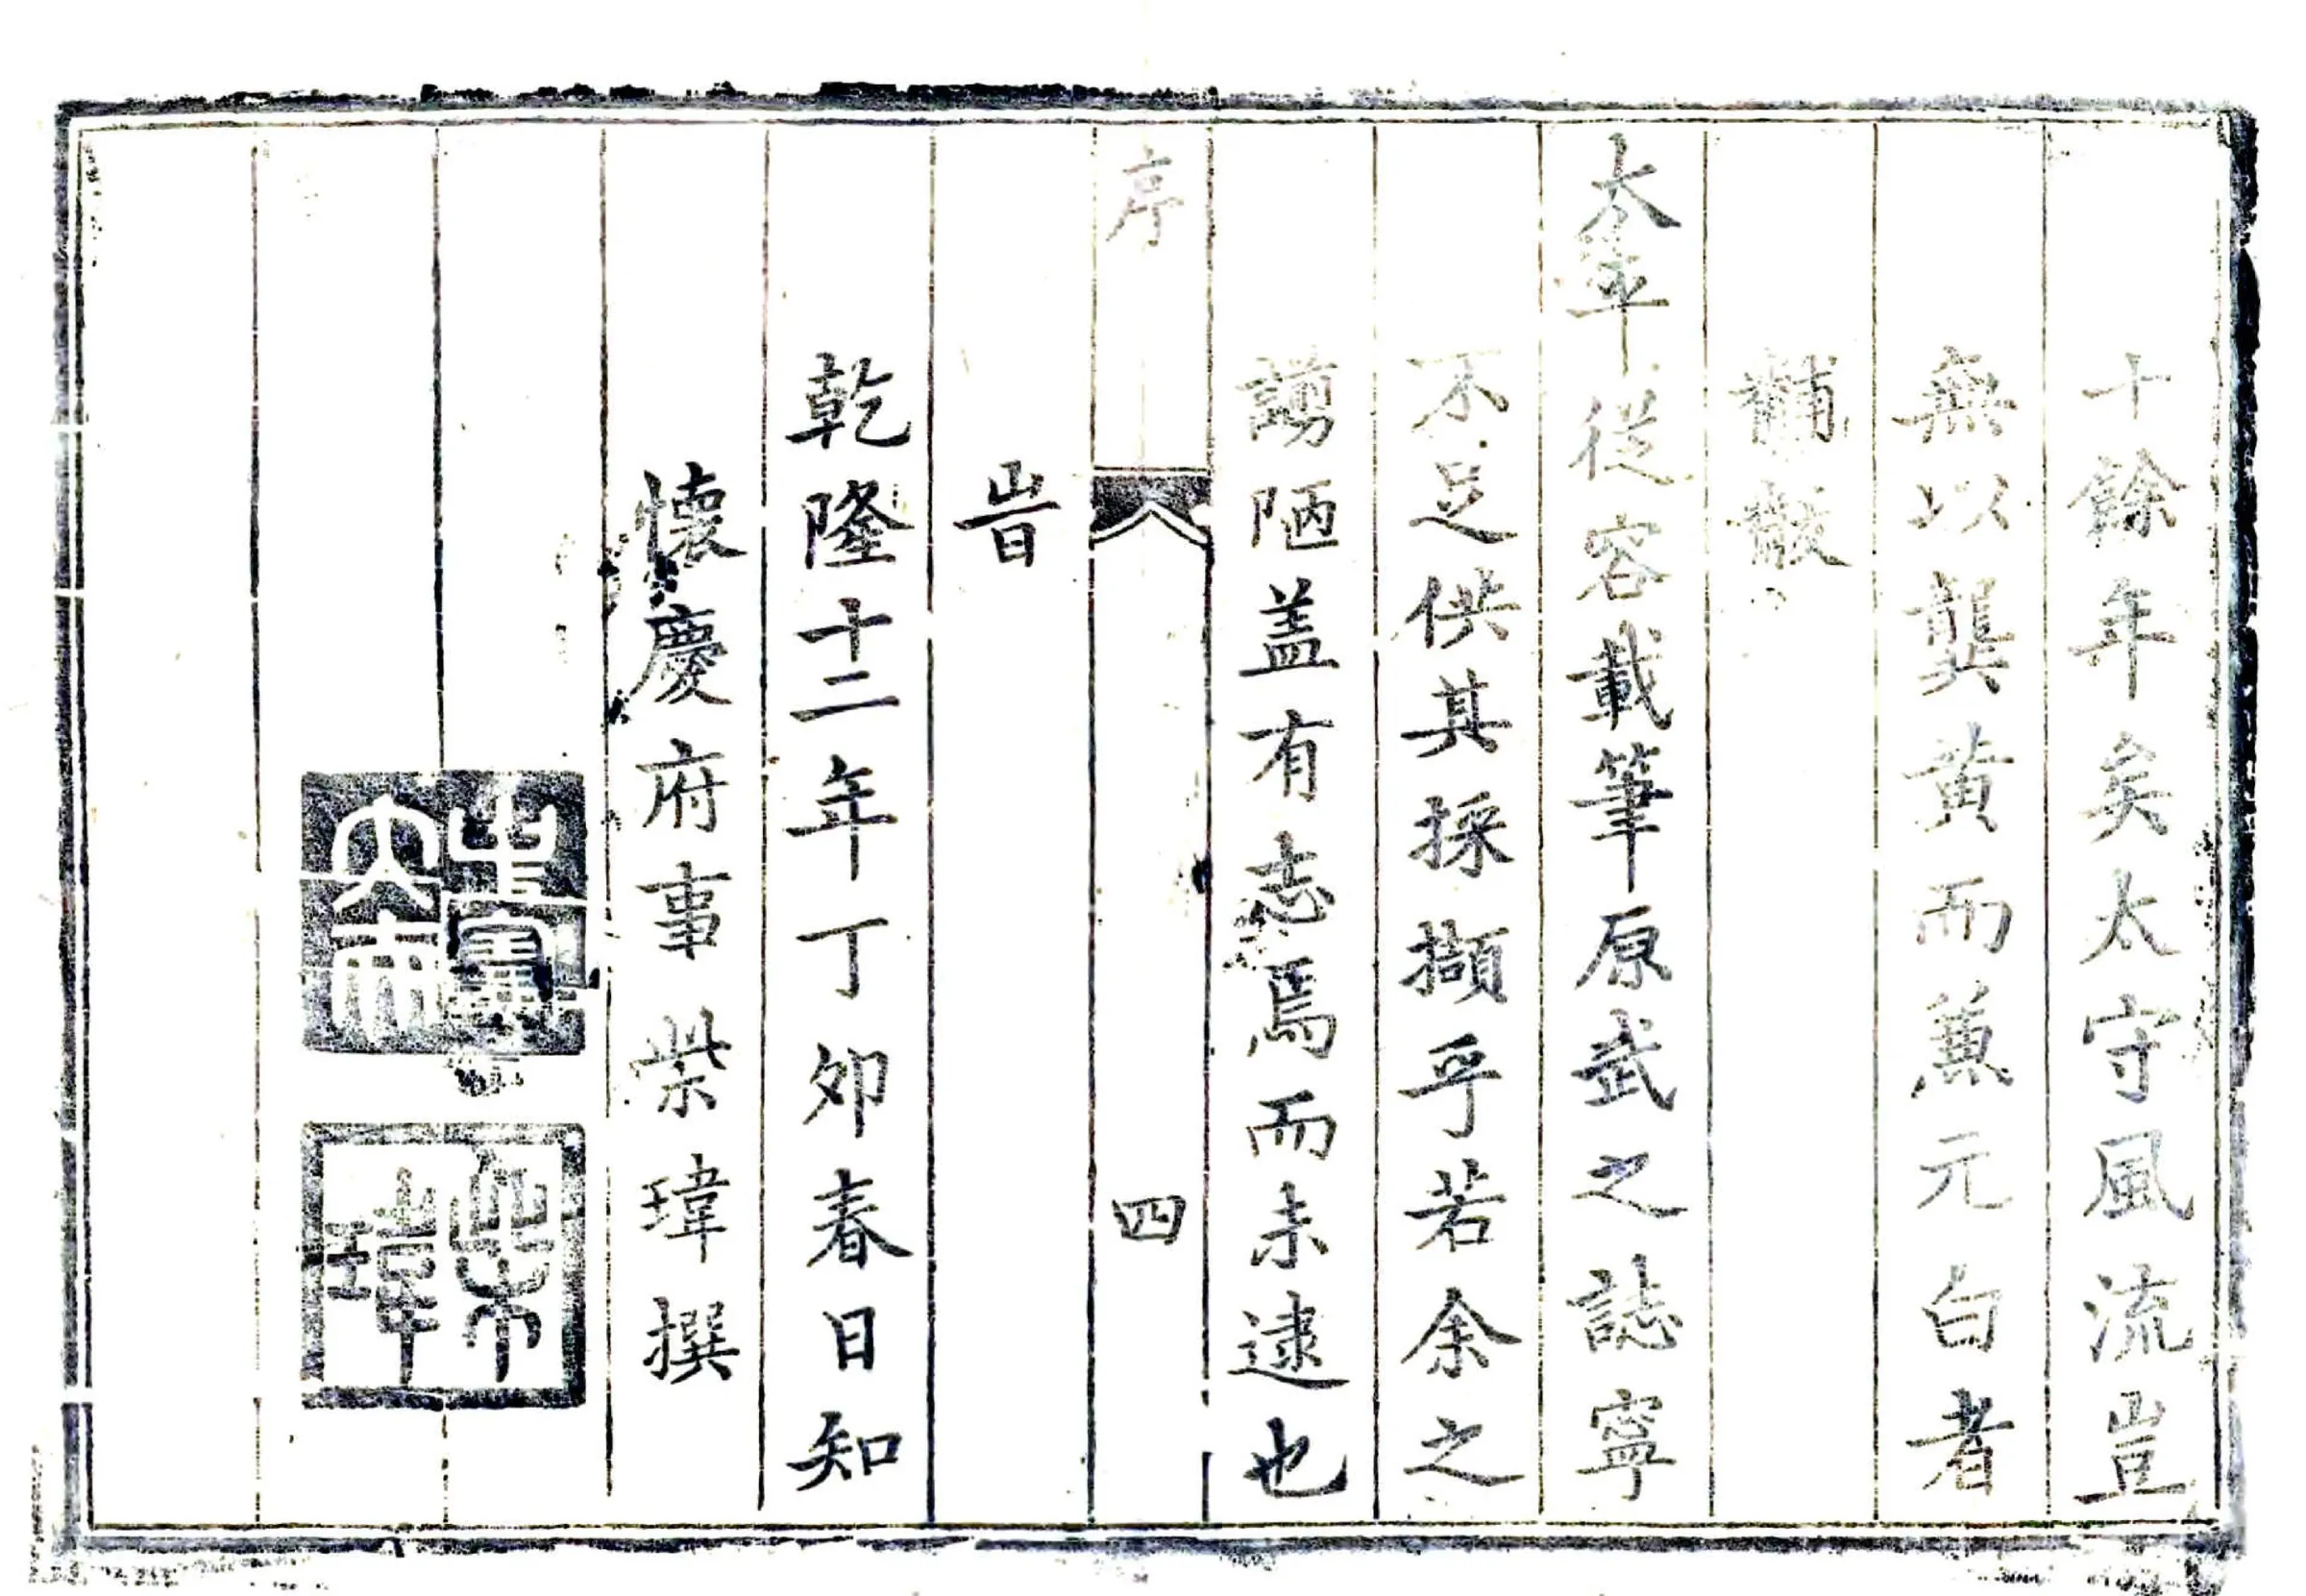 十餘年矣太守風流豈
無以龔黃而兼元白者
黼黻
太平從容載筆原武之誌寧
不足供其採擷乎若余之
謭陋盖有志焉而未逮也
序
四
旹
乾隆十二年丁卯春日知
懷慶府事柴瑋撰
柴瑋